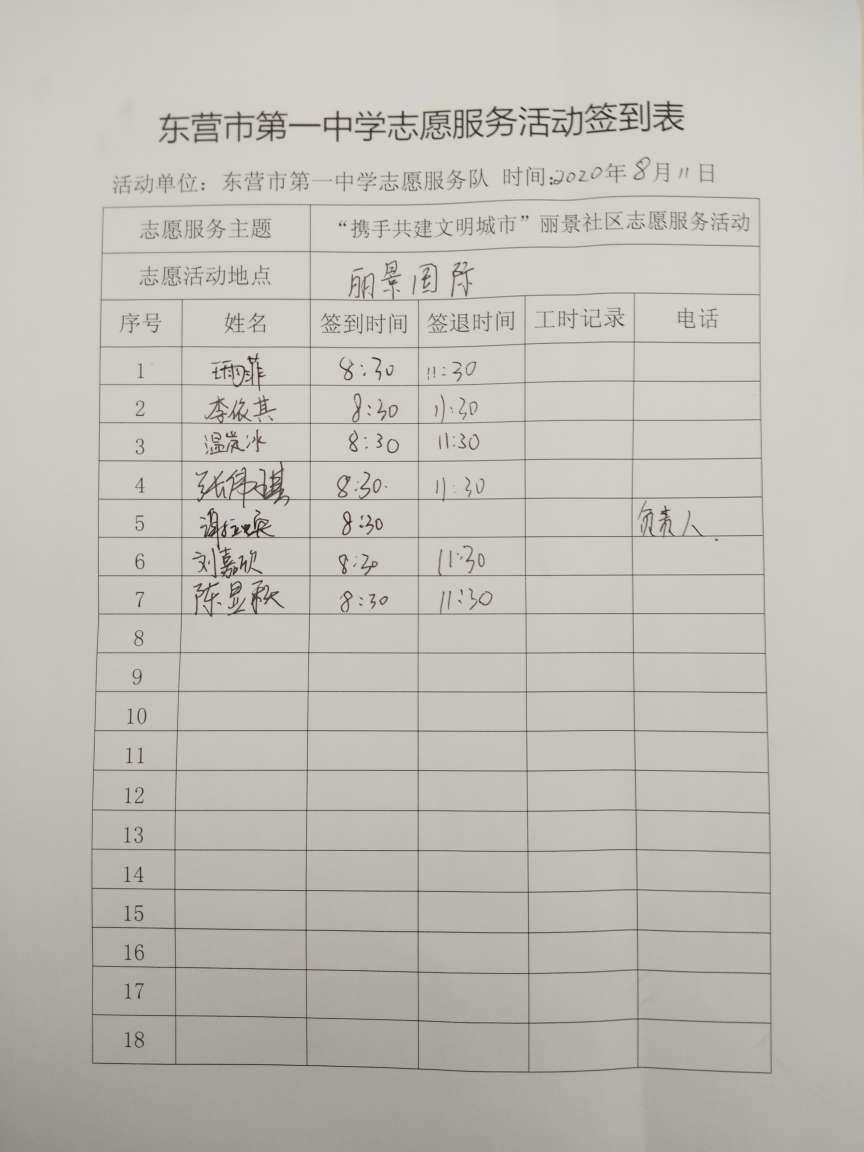 东营市第一中学志愿服务活动签到表
活动单位：东营市第一中学志愿服务队 时间:2020年8月11日
志愿服务主题 “携手共建文明城市”丽景社区志愿服务活动
志愿活动地点 丽景国际
序号 姓名 签到时间 签退时间 工时记录 电话
1 8:30 11:30
2 李依其 8:30 11:30
3 温炭冰 8:30 11:30
4 张伟琪 8:30 11:30
5 8:30 负责人.
6 刘嘉欣 8:30 11:30
7 陈显秋 8:30 11:30
8
9
10
11
12
13
14
15
16
17
18